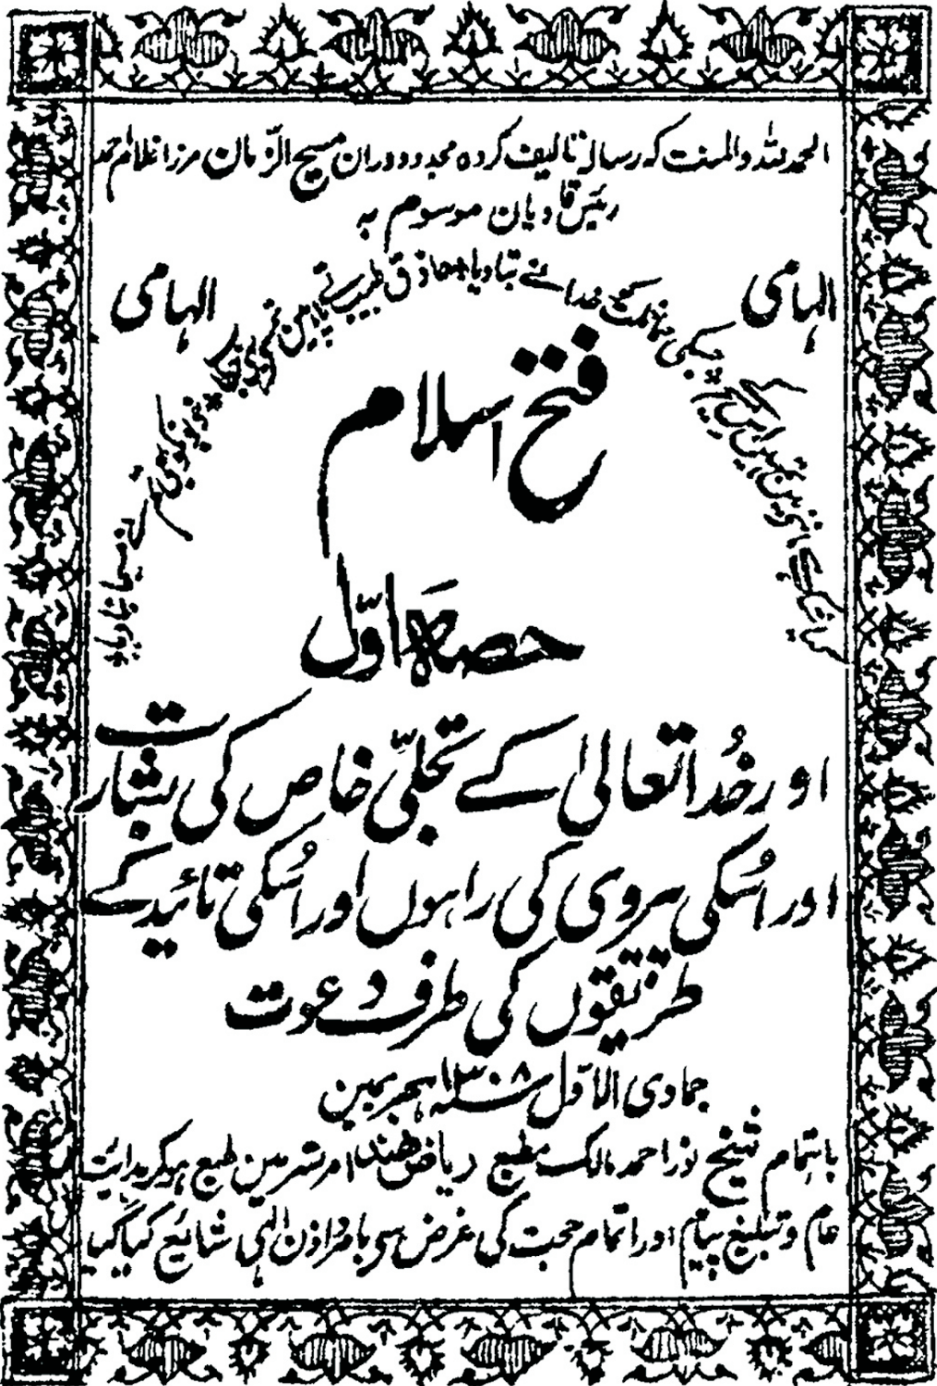 الحمد للہ والمنت کہ رسالہ تالیف کردہ مجدد دوران مسیح الزّمان مرزا غلام احمد
رئیس قادیان موسوم بہ
الہامی
الہامی
کیا شک ہے ماننے میں تمہیں اس مسیح کے * جسکی مماثلت کو خدا نے بتا دیا * حاذق طبیب پاتے ہیں تم سے یہی خطاب * خوبونکو بھی تو تم نے مسیحا بنا دیا
فتح اسلام
حصہ اوّل
اور خُدا تعالیٰ کے تجلّی خاص کی بشارت
اور اُسکی پیروی کی راہوں اور اُسکی تائید کے
طریقوں کی طرف دعوت
جمادی الاوّل ۱۳۰۸ سنہ ہجریمین
باہتمام شیخ نور احمد مالک مطبع ریاض ہند امرتسر مین طبع ہوکر ہدایت
عام و تبلیغ پیام اور اتمام حجت کی غرض سی بامر و اذن الٰہی شائع کیا گیا